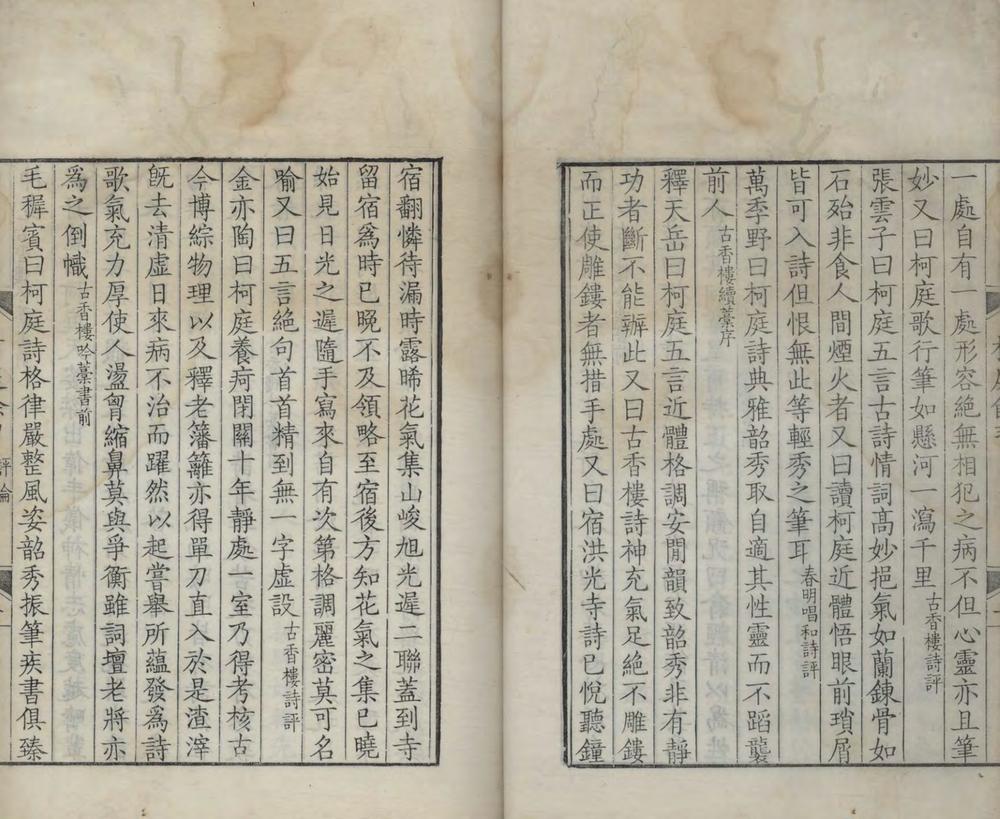 一處自有一處形容絕無相犯之病不但心靈亦且筆
妙又曰柯庭歌行筆如懸河一瀉千里古香樓詩評
張雲子曰柯庭五言古詩情詞高妙挹氣如蘭鍊骨如
石殆非食人間煙火者又曰讀柯庭近體悟眼前瑣屑
皆可入詩但恨無此等輕秀之筆耳春明唱和詩評
萬季野曰柯庭詩典雅韶秀取自適其性靈而不蹈襲
前人古香樓續藁序
釋天岳曰柯庭五言近體格調安閒韻致韶秀非有靜
功者斷不能辦此又曰古香樓詩神充氣足絕不雕鏤
而正使雕鏤者無措手處又曰宿洪光寺詩已悅聽鐘
宿翻憐待漏時露晞花氣集山峻旭光遲二聯蓋到寺
留宿爲時已晚不及領略至宿後方知花氣之集已曉
始見日光之遲隨手寫來自有次第格調麗密莫可名
喻又曰五言絕句首首精到無一字虛設古香樓詩評
金亦陶曰柯庭養疴閉關十年靜處一室乃得考核古
今博綜物理以及釋老籓籬亦得單刀直入於是渣滓
旣去清虛日來病不治而躍然以起嘗舉所蘊發爲詩
歌氣充力厚使人盪胷縮鼻莫與爭衡雖詞壇老將亦
爲之倒幟古香樓吟藁書前
毛穉賓曰柯庭詩格律嚴整風姿韶秀振筆疾書俱臻
評論